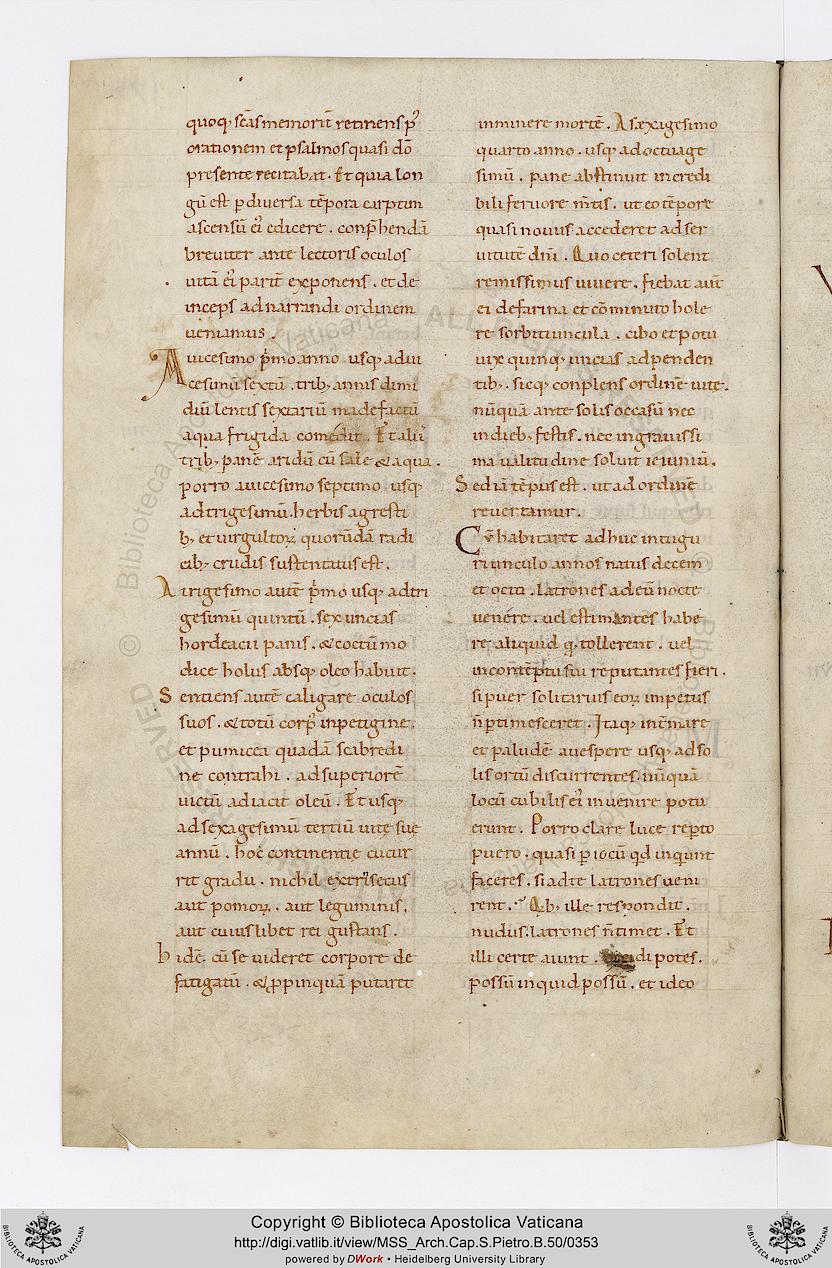 quoq; scās memorit̄ retinens p᷒
orationem et psalmos quasi dō
presente recitabat. Et quia lon
gū est p diuersa tēpora carptim
ascensū ei᷒ edicere. conp̄hendā
breuiter ante lectoris oculos
uitā ei᷒ parit̄ exponens. et de
inceps ad narrandi ordinem
ueniamus.
A uicesimo p̄mo anno usq; ad ui
cesimū sextū. trib; annis dimi
diū lentis sextariū madefactū
aqua frigida comedit. Et alii
trib; panē aridū cū sale & aqua.
porro a uicesimo septimo usq;
ad trigesimū. herbis agresti
b; et uirgultoꝝ quorūdā radi
cib; crudis sustentatus est.
A trigesimo autē p̄mo usq; ad tri
gesimū quintū. sex uncias
hordeacii panis. & coctū mo
dice holus absq; oleo habuit.
Sentiens autē caligare oculos
suos. & totū corp᷒ inpetigine.
et pumicea quadā scabredi
ne contrahi. ad superiorē
uictū adiacit oleū. Et usq;
ad sexagesimū tertiū uite sue
annū. hoc continentie cucur
rit gradu. nichil extrīsecus
aut pomoꝝ. aut leguminis.
aut cuiuslibet rei gustans.
hidē. cū se uideret corpore de
fatigatū. & ꝓpinquā putaret
inminere mortē. A sæxagesimo
quarto anno. usq; ad octuage
simū. pane abstinuit incredi
bili feruore m̄tis. ut eo tēpore
quasi nouus accederet ad ser
uitutē dn̄i. Quo ceteri solent
remissimus uiuere. fiebat aut̄
ei de farina et cōminuto hole
re sorbitiuncula. cibo et potu
uix quinq; uncias adpenden
tib;. sicq; conplens ordinē uite.
nūquā ante solis occasū nec
in dieb; festis. nec in grauissi
ma ualitudine soluit ieiuniū.
Sed iā tēpus est. ut ad ordinē
reuertamur.
Cū habitaret adhuc in tugu
riunculo annos natus decem
et octa. latrones ad eū nocte
uenere. uel estimantes habe
re aliquid q; tollerent. uel
in contēptu sui reputantes fieri.
si puer solitarius eoꝝ impetus
n̄ ptimesceret. Itaq; int̄ mare
et paludē a uespere usq; ad so
lis ortū discurrentes. nūquā
locū cubilis ei᷒ inuenire potu
erunt. Porro clare luce rep̄to
puero. quasi p iocū qd inqunt
faceres. si ad te latrones ueni
rent. Qb; ille respondit.
nudus. latrones n̄ timet. Et
illi certe aiunt. occidi potes.
possū inquid possū. et ideo
Copyright © Biblioteca Apostolica Vaticana
http://digi.vatlib.it/view/MSS_Arch.Cap.S.Pietro.B.50/0353
powered by DWork • Heidelberg University Library